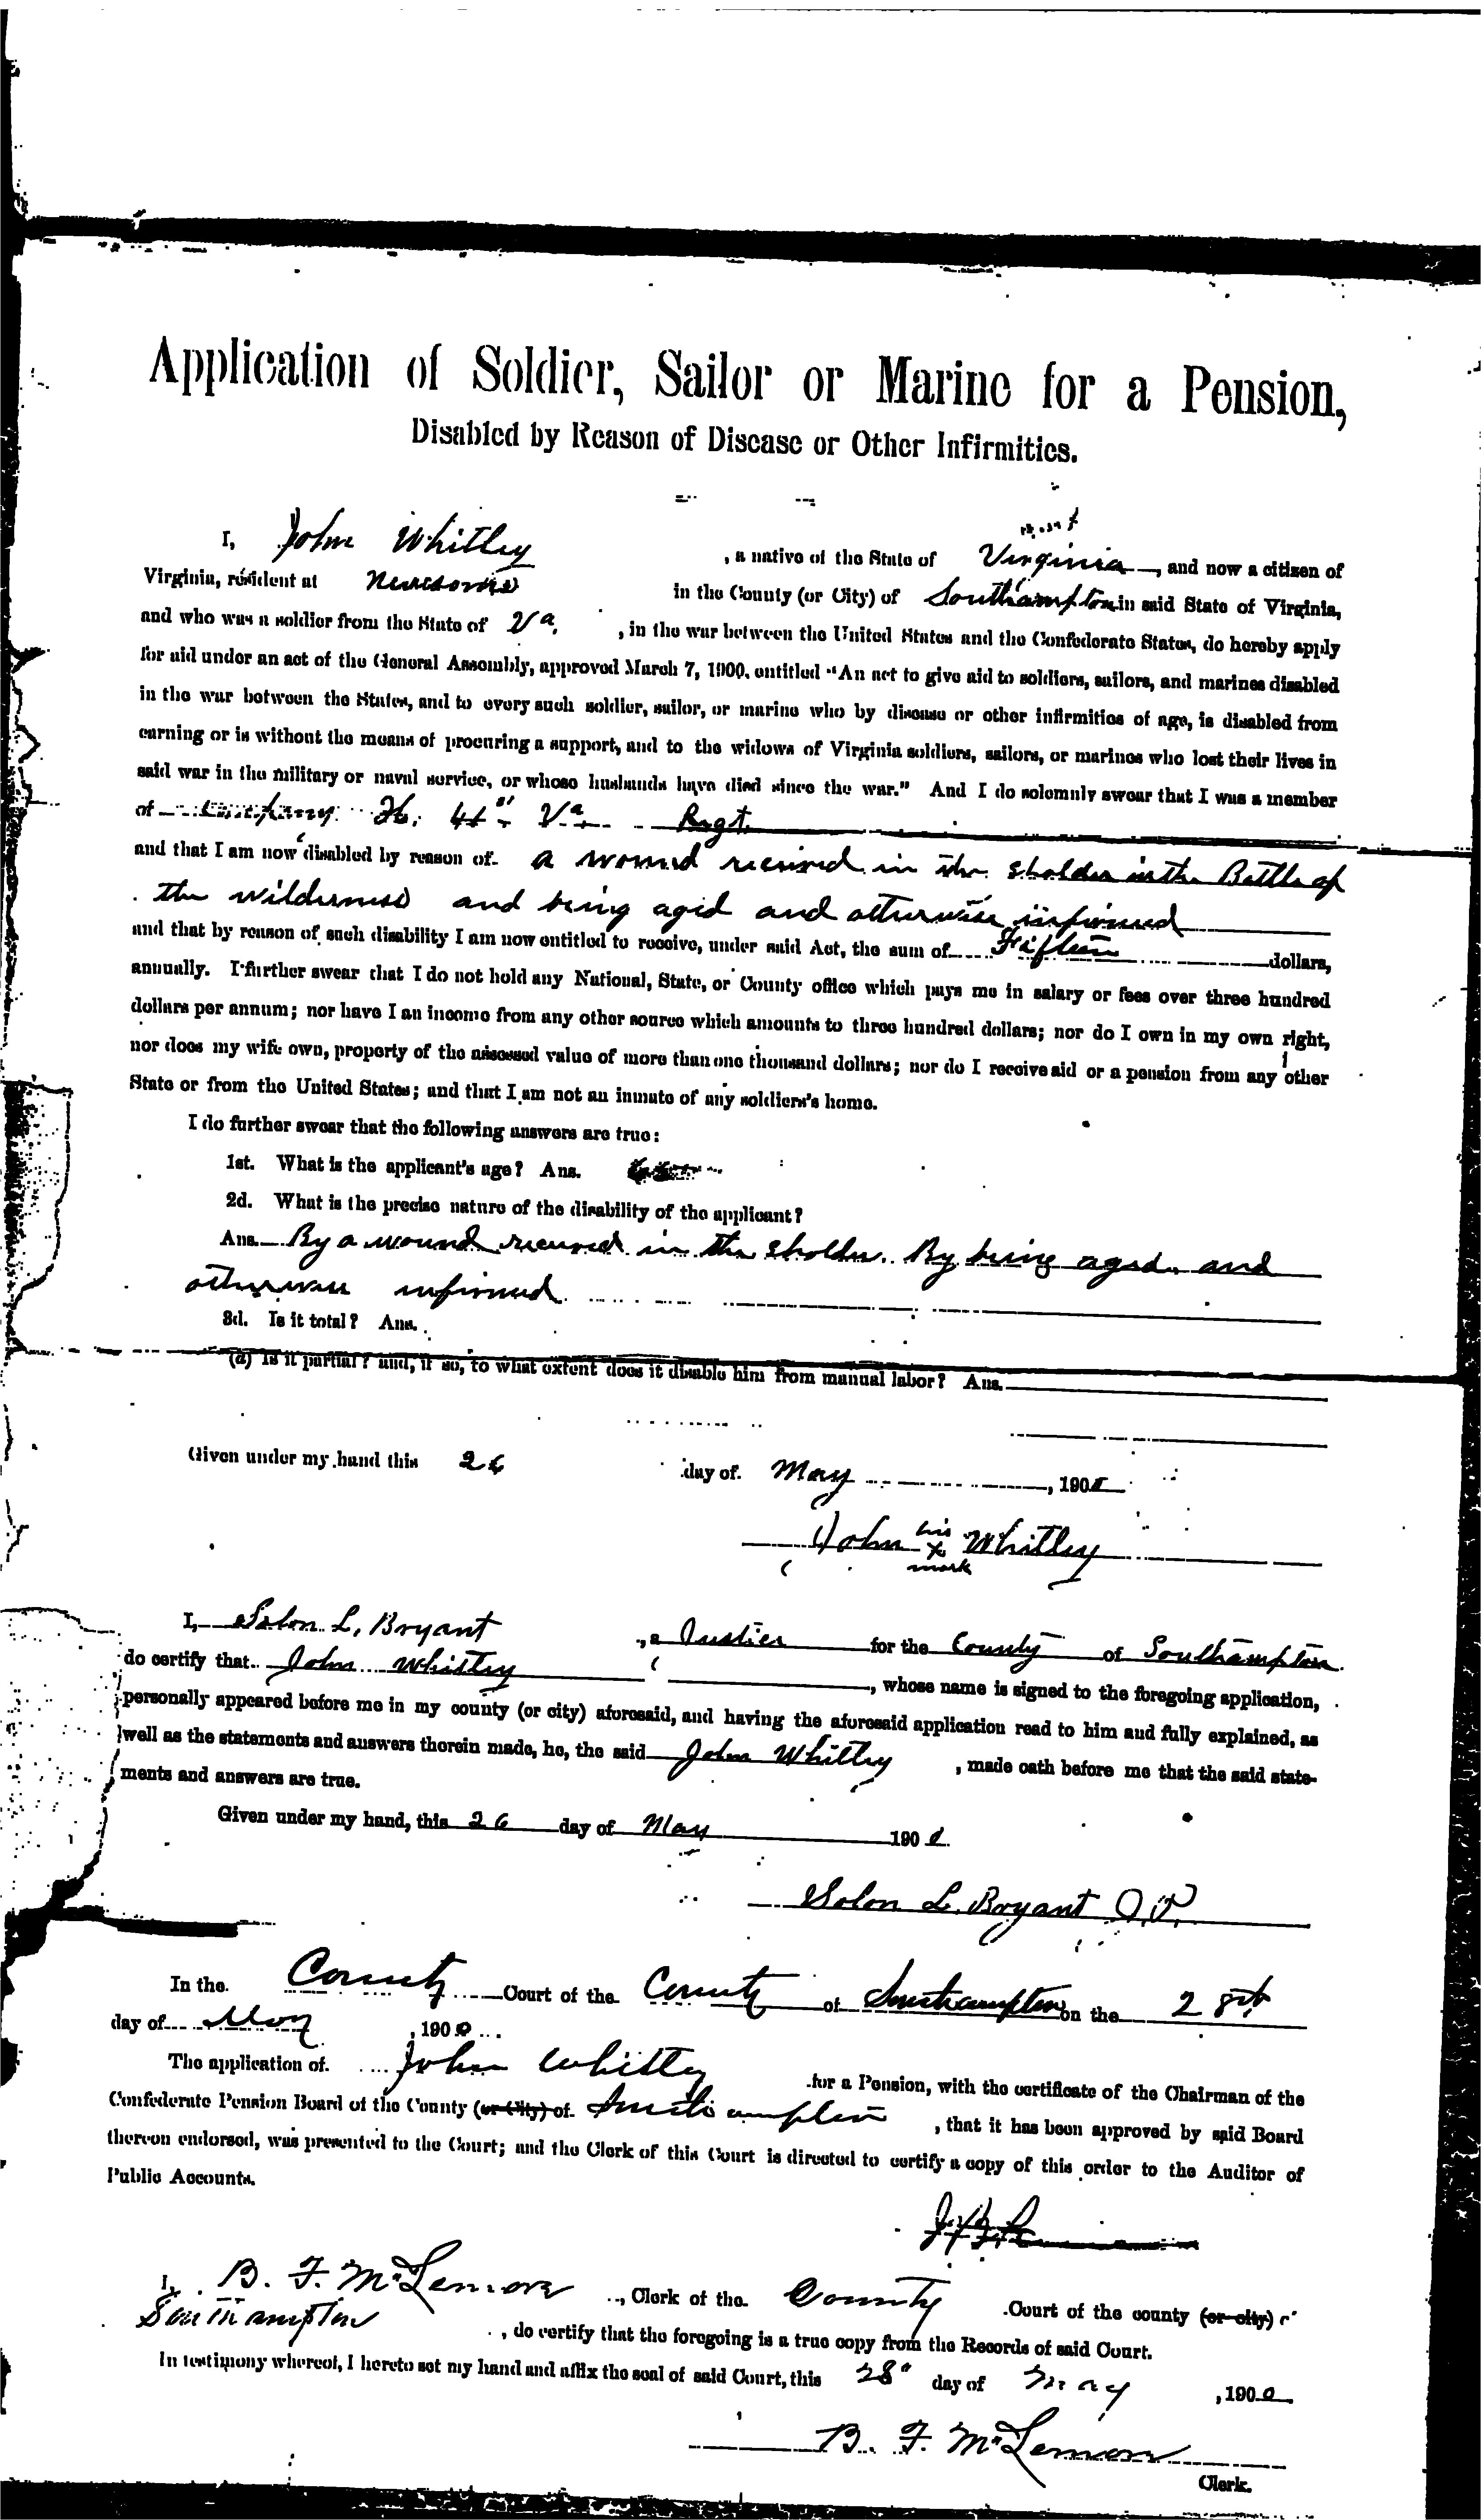 Application of Soldier, Sailor or Marine for a Pension,
Disabled by Reason of Disease or Other Infirmities.
I, John Whitley, a native of the State of Virginia, and now a citizen of
Virginia, resident at Newsoms in the County (or City) of Southampton in said State of Virginia,
and who was a soldier from the State of Va., in the war between the United States and the Confederate States, do hereby apply
for aid under an act of the General Assembly, approved March 7, 1900, entitled "An act to give aid to soldiers, sailors, and marines disabled
in the war between the States, and to every such soldier, sailor, or marine who by disease or other infirmities of age, is disabled from
earning or is without the means of procuring a support, and to the widows of Virginia soldiers, sailors, or marines who lost their lives in
said war in the military or naval service, or whose husbands have died since the war." And I do solemnly swear that I was a member
of Company H, 41st Va Regt.
and that I am now disabled by reason of a wound received in the sholder in the Battle of
the wilderness and being aged and otherwise infirmed
and that by reason of such disability I am now entitled to receive, under said Act, the sum of Fifteen dollars,
annually. I further swear that I do not hold any National, State, or County office which pays me in salary or fees over three hundred
dollars per annum; nor have I an income from any other source which amounts to three hundred dollars; nor do I own in my own right,
nor does my wife own, property of the assessed value of more than one thousand dollars; nor do I receive aid or a pension from any other
State or from the United States; and that I am not an inmate of any soldiers's home.
I do further swear that the following answers are true:
1st. What is the applicant's age? Ans.
2d. What is the precise nature of the disability of the applicant?
Ans. By a wound received in the sholder. By being aged and
otherwise infirmed
3d. Is it total? Ans.
(a) Is it partial? and, if so, to what extent does it disable him from manual labor? Ans.
Given under my hand this 26 day of May, 1900
John his x mark Whitley
I, Solon L. Bryant, a Justice for the County of Southampton
do certify that John Whitley, whose name is signed to the foregoing application,
personally appeared before me in my county (or city) aforesaid, and having the aforesaid application read to him and fully explained, as
well as the statements and answers therein made, he, the said John Whitley, made oath before me that the said state-
ments and answers are true.
Given under my hand, this 26 day of May 1900
Solon L. Bryant J.P.
In the County Court of the County of Southampton on the 28th
day of May, 1900
The application of John Whitley for a Pension, with the certificate of the Chairman of the
Confederate Pension Board of the County (or City) of Southampton, that it has been approved by said Board
thereon endorsed, was presented to the Court; and the Clerk of this Court is directed to certify a copy of this order to the Auditor of
Public Accounts.
I, B. F. McLemore, Clerk of the County Court of the county (or city) of
Southampton, do certify that the foregoing is a true copy from the Records of said Court.
In testimony whereof, I hereto set my hand and affix the seal of said Court, this 28" day of May, 1900
B. F. McLemore
Clerk.